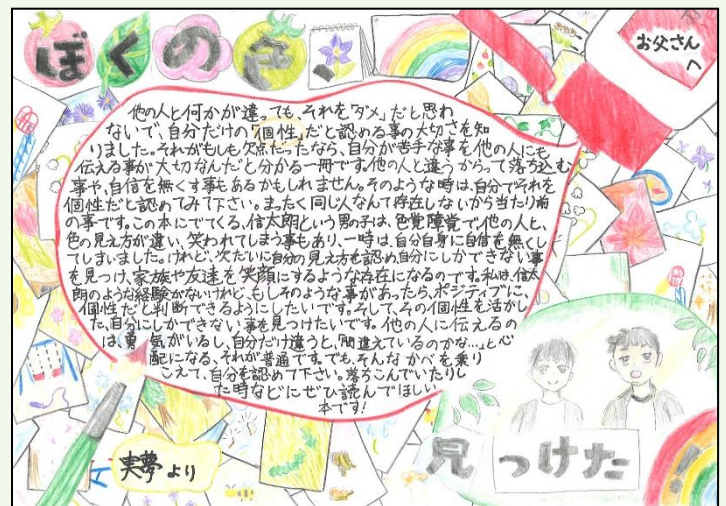 ぼくの色
お父さん
へ
他の人と何かが違っても、それを「ダメ」だと思わ
ないで、自分だけの「個性」だと認める事の大切さを知
りました。それがもしも欠点だったなら、自分が苦手な事を他の人にも
伝える事が大切なんだと分かる一冊です。他の人と違うからって落ち込む
事や、自信を無くす事もあるかもしれません。そのような時は、自分でそれを
個性だと認めてみて下さい。まったく同じ人なんて存在しないから当たり前
の事です。この本にでてくる、信太朗という男の子は、色覚障覚で他の人と、
色の見え方が違い、笑われてしまう事もあり、一時は、自分自身に自信を無くし
てしまいました。けれど、次だいに自分の見え方を認め、自分にしかできない事
を見つけ、家族や友達を笑顔にするような存在になるのです。私は、信太
朗のような経験がないけれど、もしそのような事があったら、ポジティブに、
個性だと判断できるようにしたいです。そして、その個性を活かし
た、自分にしかできない事を見つけたいです。他の人に伝えるの
は、勇気がいるし、自分だけ違うと、「間違えているのかな…」と心
配になる、それが普通です。でも、そんなかべを乗り
こえて、自分を認めて下さい。落ちこんでいたりし
た時などにぜひ読んでほしい
本です!
実夢より
見つけた